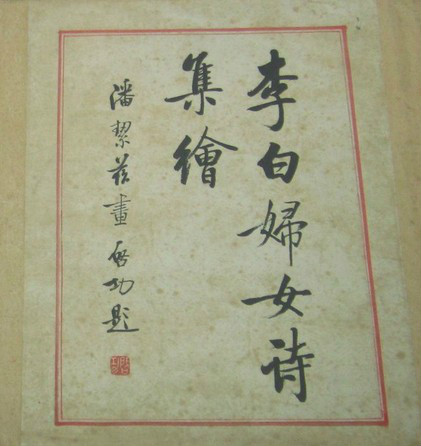 李白婦女诗
集繪
潘絜茲畫啓功題